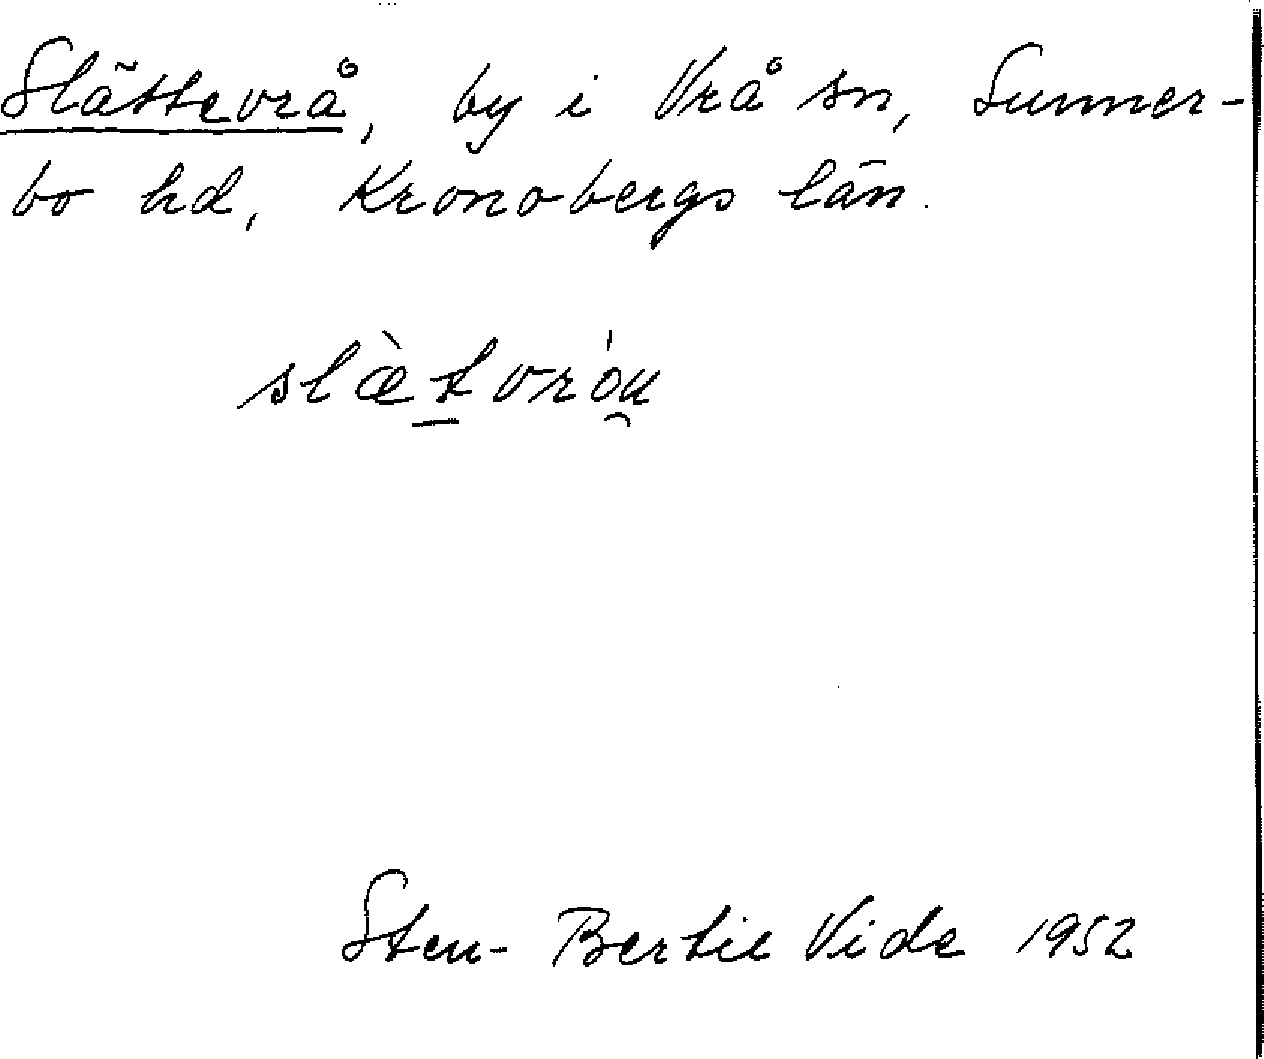 Slättevrå, by i Vrå sn, Sunner-
bo hd, Kronobergs län.
slæ̀t̲vró͜u
Sten-Bertil Vide 1952